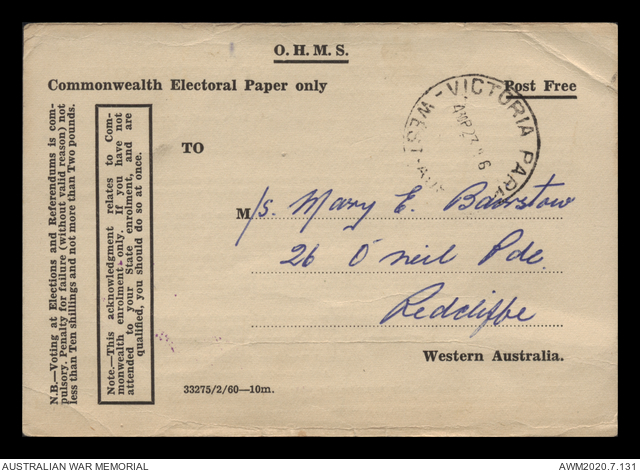 O. H. M. S.
Commonwealth Electoral Paper only
Post Free
VICTORIA PARK
WEST
TO
M/s. Mary E. Bairstow
26 O'neil Pde.
Redcliffe
Western Australia.
33275/2/60—10m.
N.B.—Voting at Elections and Referendums is com-
pulsory. Penalty for failure (without valid reason) not
less than Ten shillings and not more than Two pounds.
Note.—This acknowledgment relates to Com-
monwealth enrolment only. If you have not
attended to your State enrolment, and are
qualified, you should do so at once.
AUSTRALIAN WAR MEMORIAL
AWM2020.7.131